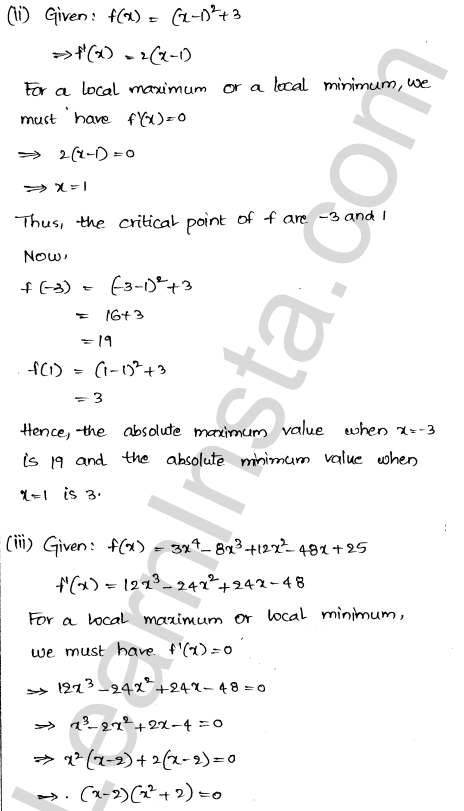 (ii) Given: f(x) = (x-1)²+3
⇒ f'(x) = 2(x-1)
For a local maximum or a local minimum, we
must have f'(x)=0
⇒ 2(x-1)=0
⇒ x=1
Thus, the critical point of f are -3 and 1
Now,
f(-3) = (-3-1)²+3
= 16+3
=19
f(1) = (1-1)²+3
= 3
Hence, the absolute maximum value when x=-3
is 19 and the absolute minimum value when
x=1 is 3.
(iii) Given: f(x) = 3x⁴-8x³+12x²-48x+25
f'(x) = 12x³-24x²+24x-48
For a local maximum or local minimum,
we must have f'(x)=0
⇒ 12x³-24x²+24x-48=0
⇒ x³-2x²+2x-4=0
⇒ x²(x-2)+2(x-2)=0
⇒ (x-2)(x²+2)=0
LearnInsta.com